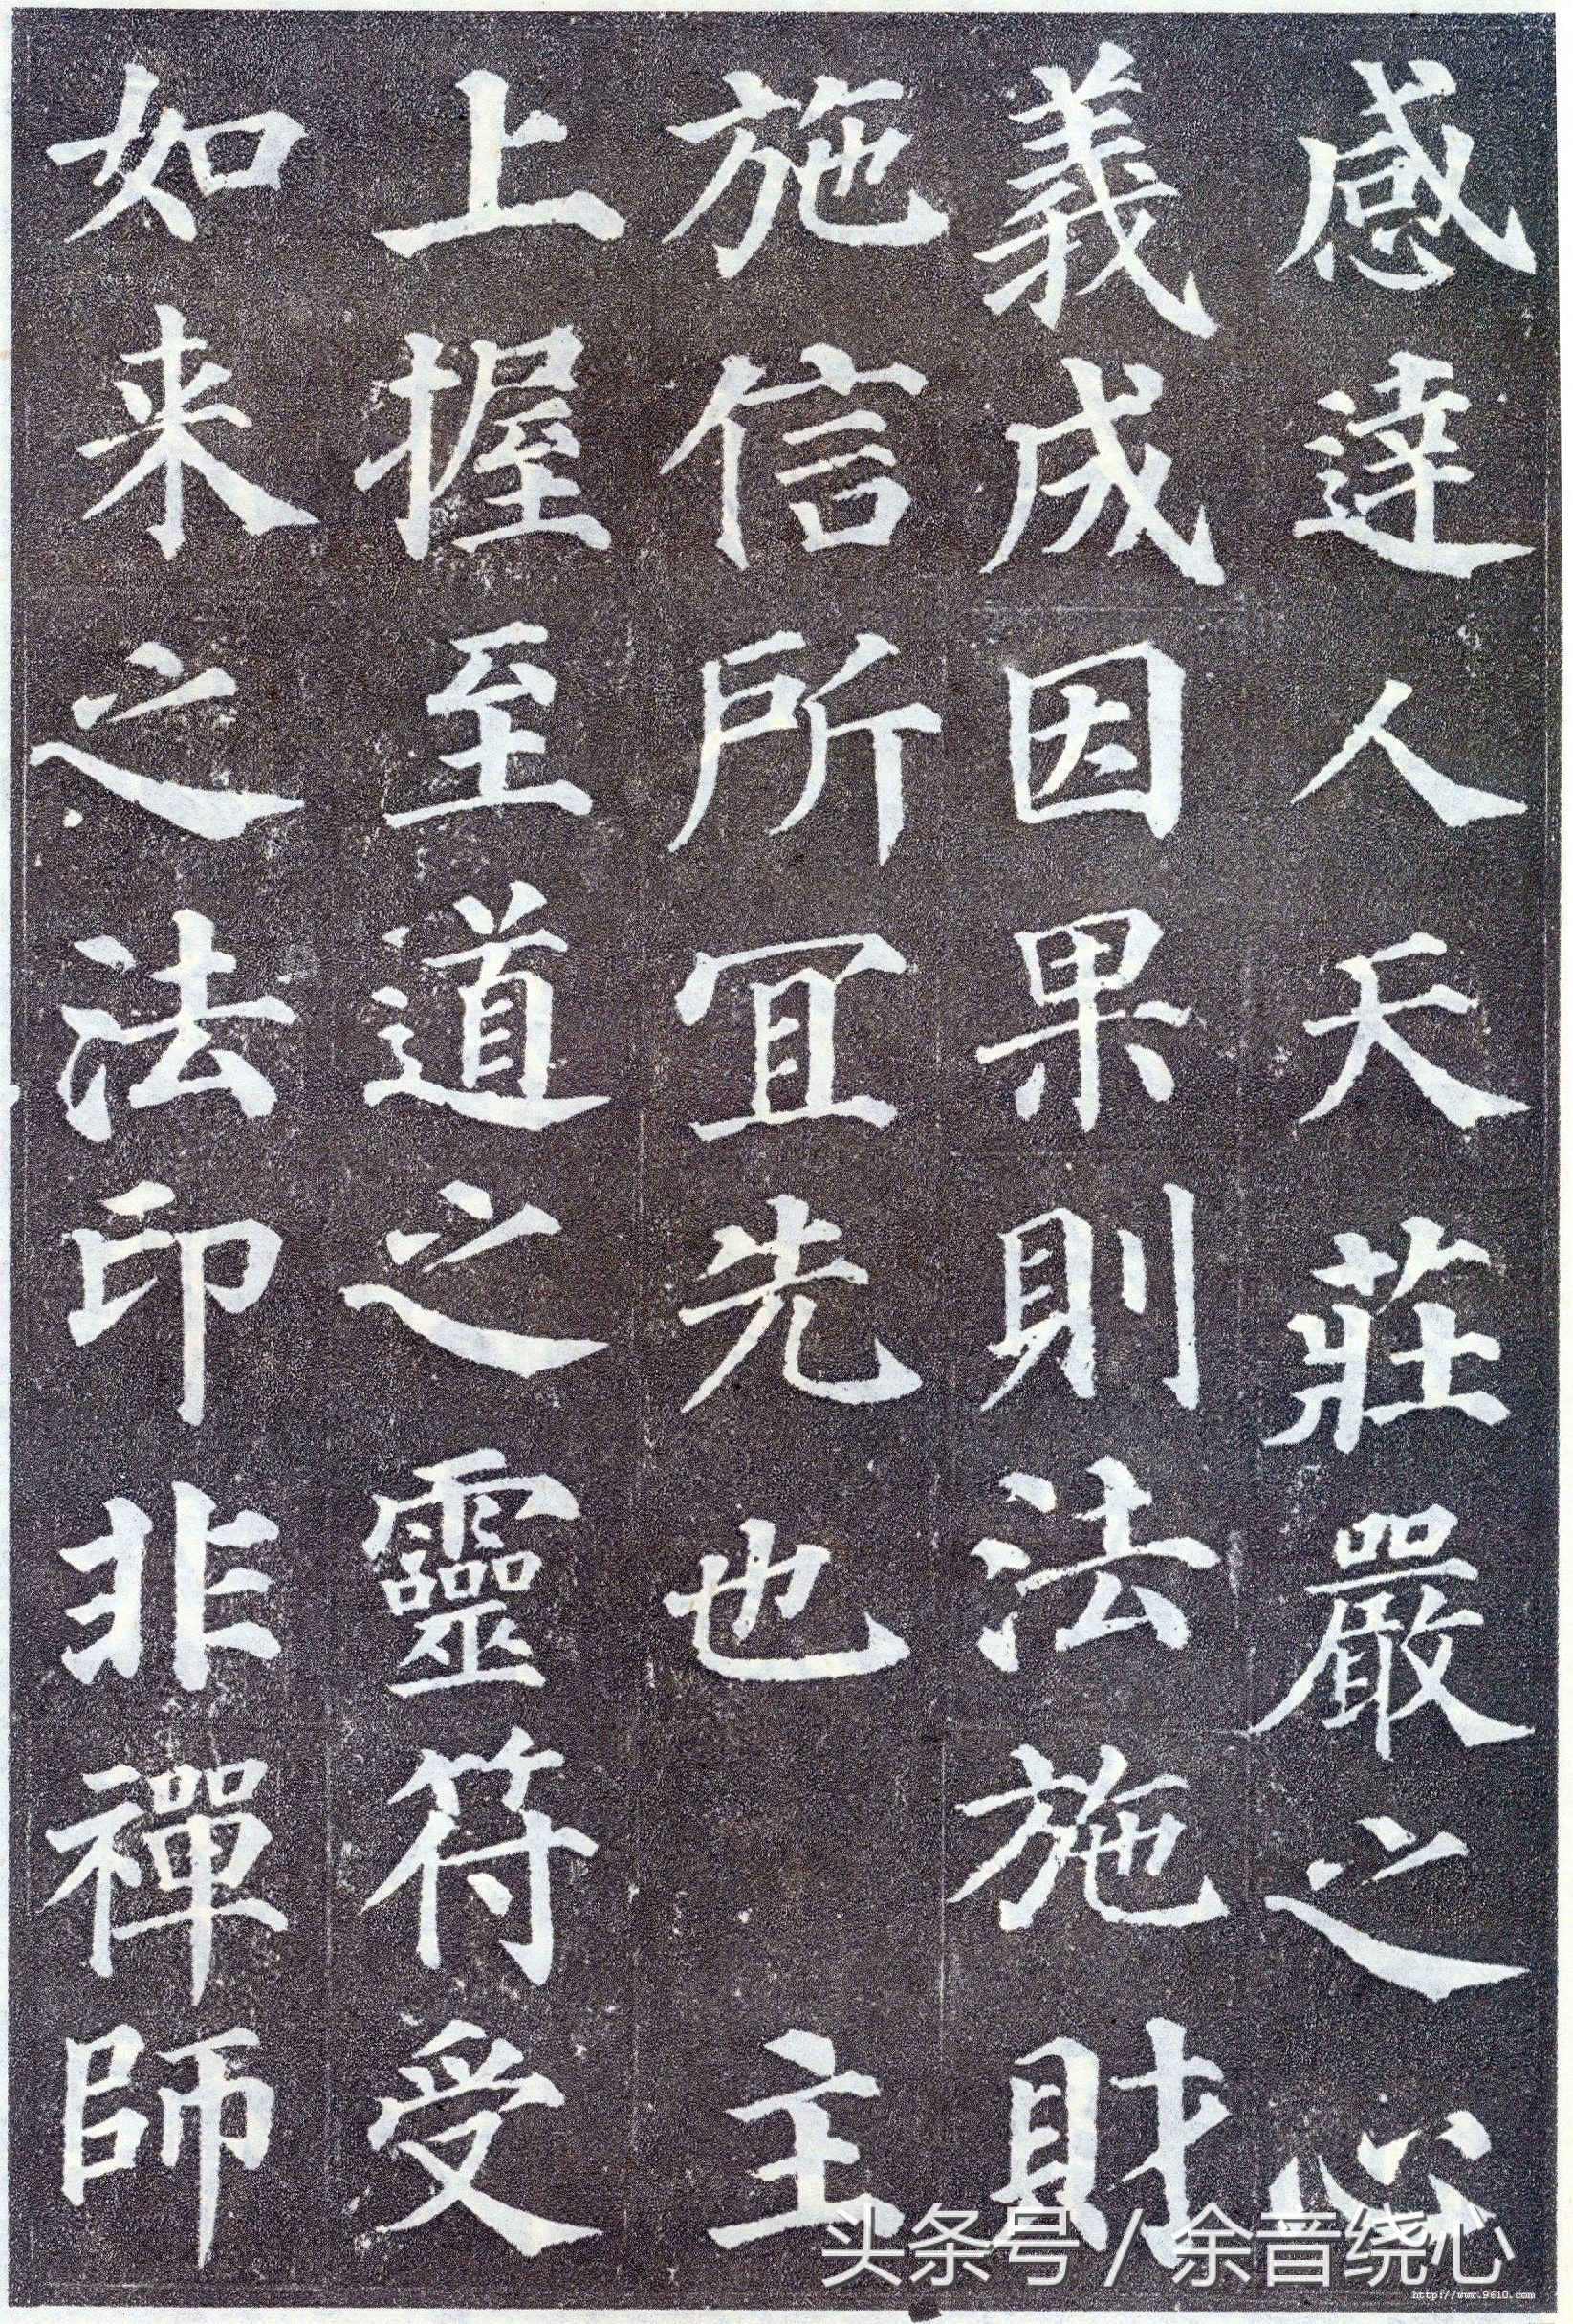 感達人天莊嚴之心
義成因果則法施財
施信所宜先也主
上握至道之靈符受
如来之法印非禪師
头条号 / 余音绕心
http://www.9610.com